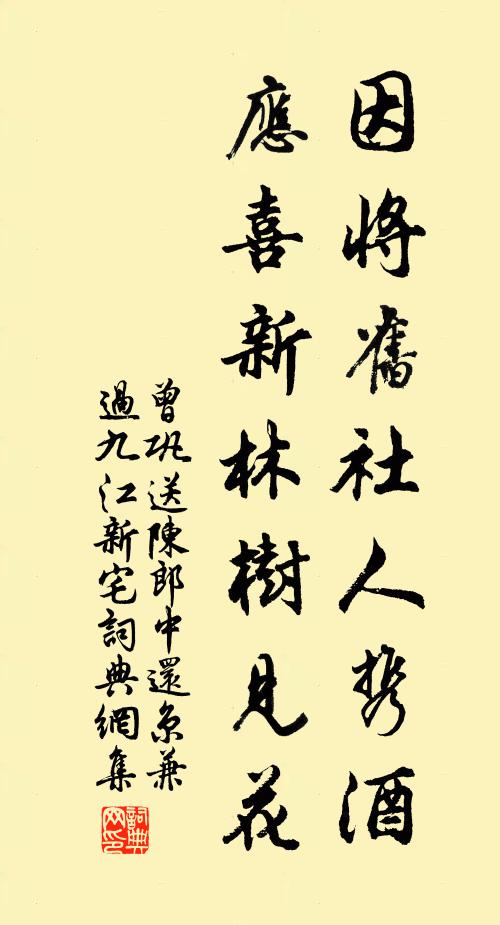 因將舊社人携酒
應喜新林樹見花
曾巩送陳郎中還京兼
過九江新宅詞典網集
詞典
网印